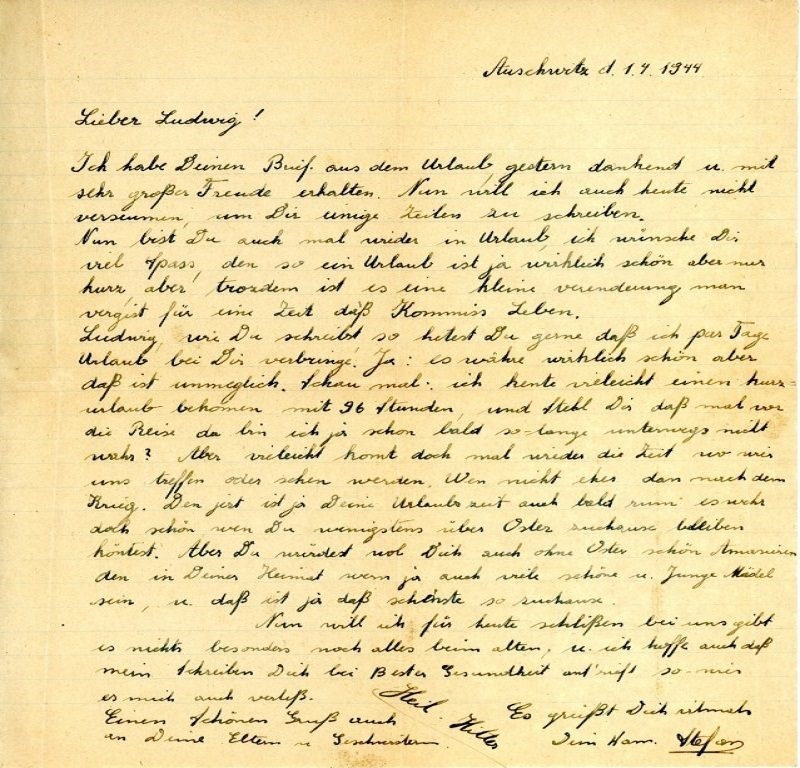 Auschwitz d. 1.4.1944
Lieber Ludwig!
Ich habe Deinen Brief. aus dem Urlaub gestern dankend u. mit
sehr großer Freude erhalten. Nun will ich auch heute nicht
verseumen, um Dir einige Zeilen zu schreiben.
Nun bist Du auch mal wieder in Urlaub ich wünsche Dir
viel Spass, den so ein Urlaub ist ja wirklich schön aber nur
kurz aber trozdem ist es eine kleine verenderung man
vergist für eine Zeit daß Kommiss Leben.
Ludwig, wie Du schreibst so hetest Du gerne daß ich par Tage
Urlaub bei Dir verbringe. Ja: es währe wirklich schön aber
daß ist unmeglich. Schau mal: ich kente vieleicht einen kurz-
urlaub bekomen mit 96 Stunden, und Stehl Dir daß mal vor
die Reise da bin ich ja schon bald so-lange unterwegs nicht
wahr? Aber vieleicht komt doch mal wieder die Zeit wo wir
uns treffen oder sehen werden. Wen nicht eher dan nach dem
Krieg. Den jezt ist ja Deine Urlaubszeit auch bald rum es wehr
doch schön wen Du wenigstens über Oster zuhause bleiben
köntest. Aber Du würdest wol Dich auch ohne Oster schön Amansiren
den in Deiner Heimat wern ja auch viele schöne u. Junge Mädel
sein, u. daß ist ja daß schönste so zuhause.
Nun will ich für heute schlißen bei uns gibt
es nichts besonders noch alles beim alten, u. ich hoffe auch daß
mein Schreiben Dich bei Bester Gesundheit antrift so-wie
er mich auch verließ.
Heil Hitler
Einen Schönen Gruß auch
an Deine Eltern u Geschwistern
Es grüßt Dich
Dein Kam. Stefan